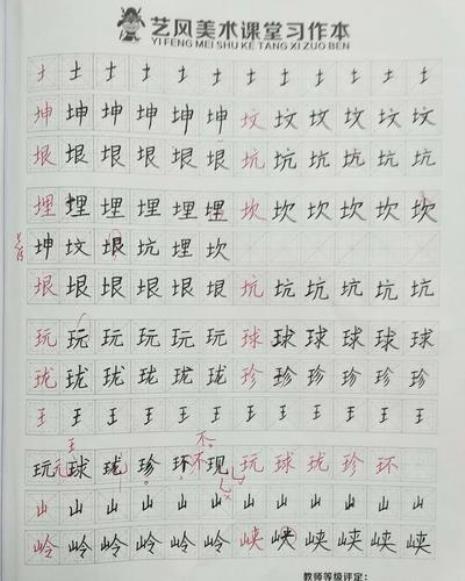 艺风美术课堂习作本
YI FENG MEI SHU KE TANG XI ZUO BEN
土 土 土 土 土 土 土 土 土 土 土 土
坤 坤 坤 坤 坤 坤 坟 坟 坟 坟 坟 坟
垠 垠 垠 垠 垠 垠 坑 坑 坑 坑 坑 坑
埋 埋 埋 埋 埋 埋 坎 坎 坎 坎 坎 坎
坤 坟 垠 坑 埋 坎
垠 垠 垠 垠 垠 垠 坑 坑 坑 坑 坑 坑
玩 玩 玩 玩 玩 玩 球 球 球 球 球 球
珑 珑 珑 珑 珑 珑 珍 珍 珍 珍 珍 珍
王 王 王 王 王 王 王 王 王 王 王 王
王 不
玩 元 球 珑 珍 环 不 现 玩 球 珑 珍 环
山 山 山 山 山 山 山 山 山 山 山 山
岭 岭 岭 岭 岭 岭 峡 峡 峡 峡 峡 峡
教师等级评定: